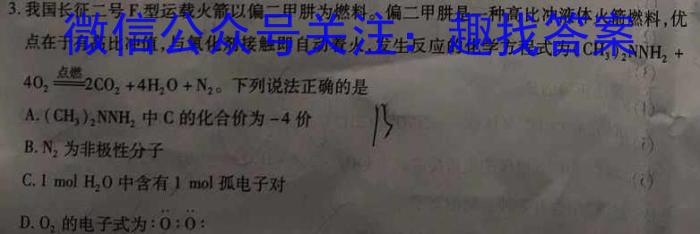 3.我国长征二号F型运载火箭以偏二甲肼为燃料。偏二甲肼是一种高比冲液体火箭燃料,优
点在于有高比冲值,与氧化剂接触即自动着火,发生反应的化学方程式为(CH₃)₂NNH₂+
微信公众号关注:趣找答案
4O₂ 点燃 2CO₂+4H₂O+N₂。下列说法正确的是
A.(CH₃)₂NNH₂ 中 C 的化合价为-4 价
B
B.N₂ 为非极性分子
C.1 mol H₂O 中含有 1 mol 孤电子对
D.O₂ 的电子式为:Ö:Ö: